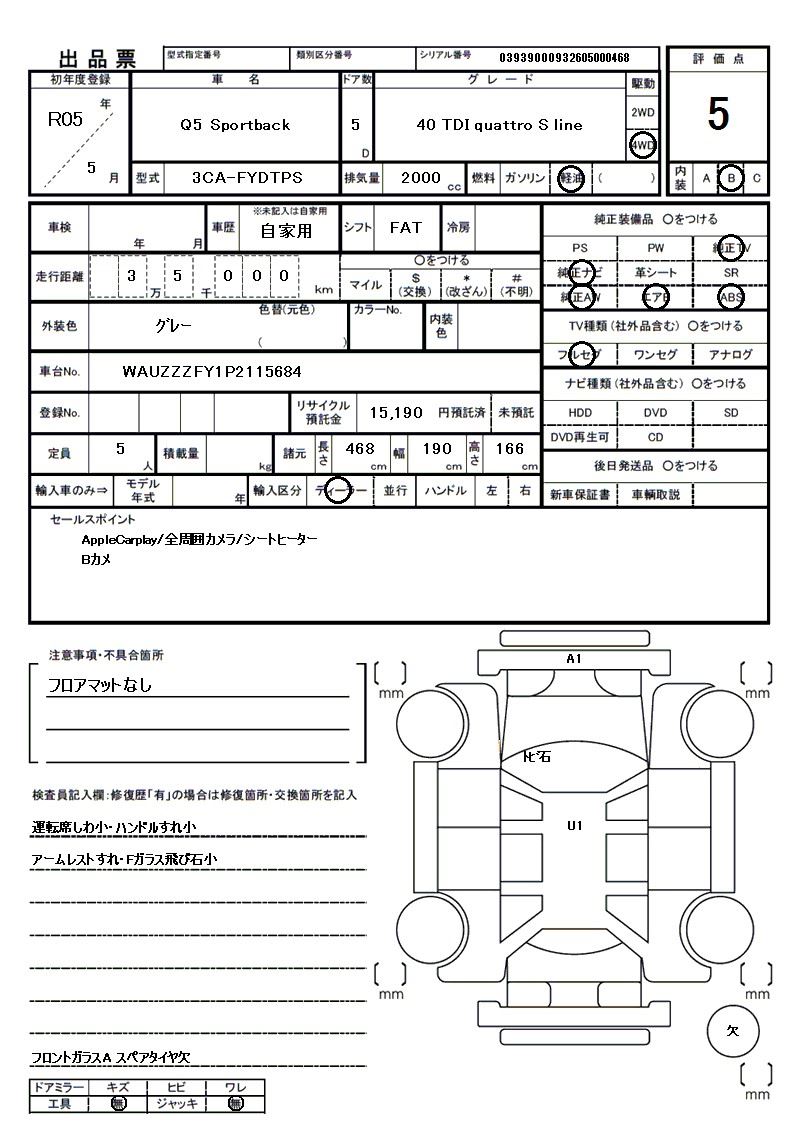 出品票
型式指定番号 類別区分番号 シリアル番号 03939000932605000468
初年度登録 車名 ドア数 グレード 駆動 評価点
R05 年 5 月
Q5 Sportback
5 D
40 TDI quattro S line
2WD
4WD
5
型式 3CA-FYDTPS 排気量 2000 cc 燃料 ガソリン 軽油 ( )
内装 A B C
車検 年 月 車歴 ※未記入は自家用 自家用 シフト FAT 冷房
走行距離 3 万 5 千 0 0 0 km
〇をつける
マイル $(交換) *(改ざん) #(不明)
外装色 グレー 色替(元色) ( ) カラーNo. 内装色
車台No. WAUZZZFY1P2115684
登録No. リサイクル預託金 15,190 円預託済 未預託
定員 5 人 積載量 kg 諸元 長さ 468 cm 幅 190 cm 高さ 166 cm
輸入車のみ⇒ モデル年式 年 輸入区分 ディーラー 並行 ハンドル 左 右
純正装備品 〇をつける
PS PW 純正TV
純正ナビ 革シート SR
純正AW エアB ABS
TV種類(社外品含む) 〇をつける
フルセグ ワンセグ アナログ
ナビ種類(社外品含む) 〇をつける
HDD DVD SD
DVD再生可 CD
後日発送品 〇をつける
新車保証書 車輌取説
セールスポイント
AppleCarplay/全周囲カメラ/シートヒーター
Bカメ
注意事項・不具合箇所
フロアマットなし
検査員記入欄:修復歴「有」の場合は修復箇所・交換箇所を記入
運転席しわ小・ハンドルすれ小
アームレストすれ・Fガラス飛び石小
フロントガラスA スペアタイヤ欠
ドアミラー キズ ヒビ ワレ
工具 無 ジャッキ 無
A1
トビ石
U1
mm
mm
mm
mm
欠
mm